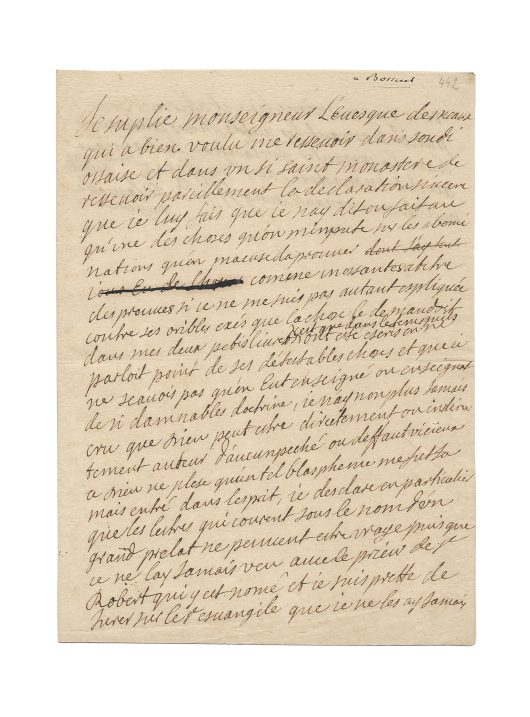 a Bossuet 442
Je suplie monseigneur L'evesque de meaux
qui a bien voulu me ressevoir dans son di
ossaise et dans vn si saint monastere de
ressevoir pareillement la declaration sincere
que ie luy fais que ie nay dit ou fait au
qu'vne des choses quon m'impute sur les abomi
nations quon macuse daprouuer dont J'ay tout
comme inosante a titre
des preuues si ie ne me suis pas autant expliquée
contre ses oribles exés que la chose le demandoit
dans mes deux petis liures c'est que dans le temps quils
ont ete escris on ne
parloit point de ses detestables choses et que ie
ne scauois pas quon Eut enseigné ou enseignat
de si damnables doctrine, ie nay non plus Jamais
cru que dieu peut etre directement ou indire
tement auteur d'aucun peché ou deffaut vicieux
a dieu ne plese quun tel blaspheme me fut Ja
mais entré dans lesprit, ie desclare en particulie
que les letres qui courent sous le nom d'vn
grand prelat ne peuuent etre vraye puis que
ie ne lay Jamais veu auec le prieur de St
Robert qui y est nomé et ie suis prette de
Jurer sur le St euangile que ie ne les ay Jamais